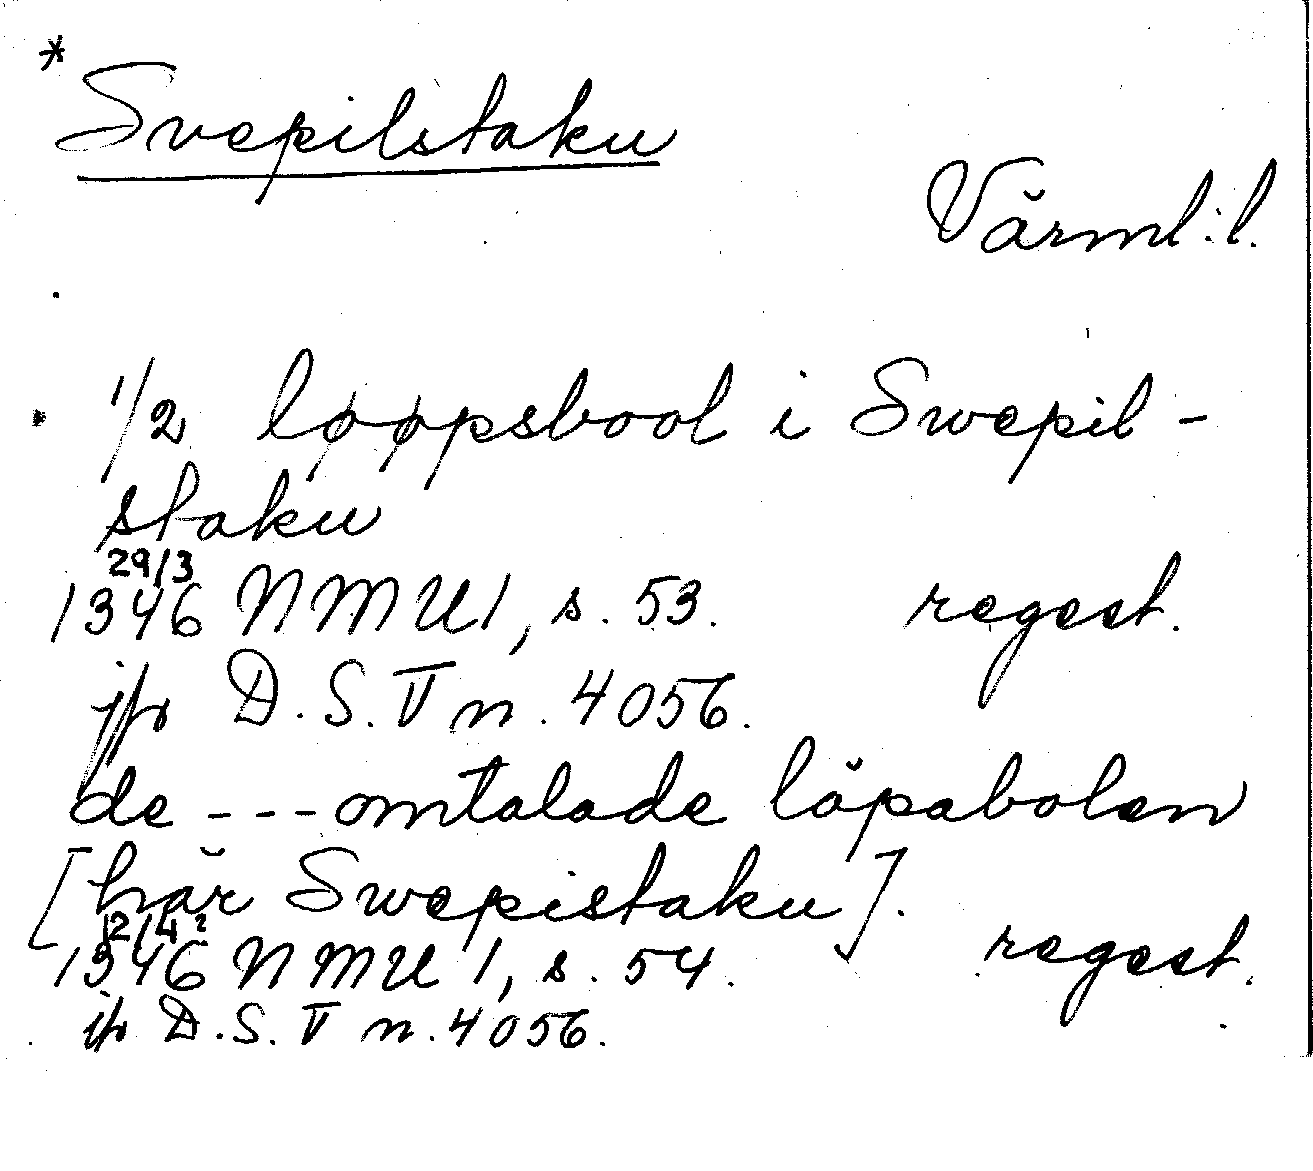 *
Svepilstaku
Värml. l.
1/2 løøpsbool i Swepil-
staku
29/3
1346 NMU 1, s. 53. regest.
jfr D.S. V n. 4056.
de --- omtalade löpabolen
[här Swepistaku].
12/4 ?
1346 NMU 1, s. 54. regest.
jfr D.S. V n. 4056.